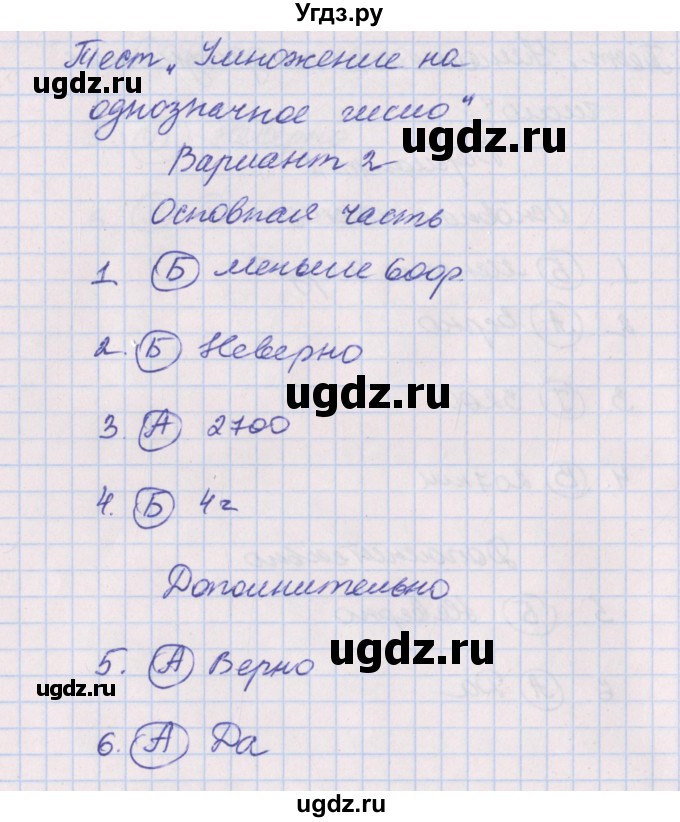 Угдз.ру
Тест „Умножение на
ugdz.ru
однозначное число“
ugdz.ru
Вариант 2
Основная часть
1 Б меньше 600р.
ugdz.ru
2. Б Неверно
ugdz.ru
3. А 2700
4. Б 4г
Дополнительно
5. А Верно
ugdz.ru
ugdz.ru
6. А Да
ugdz.ru